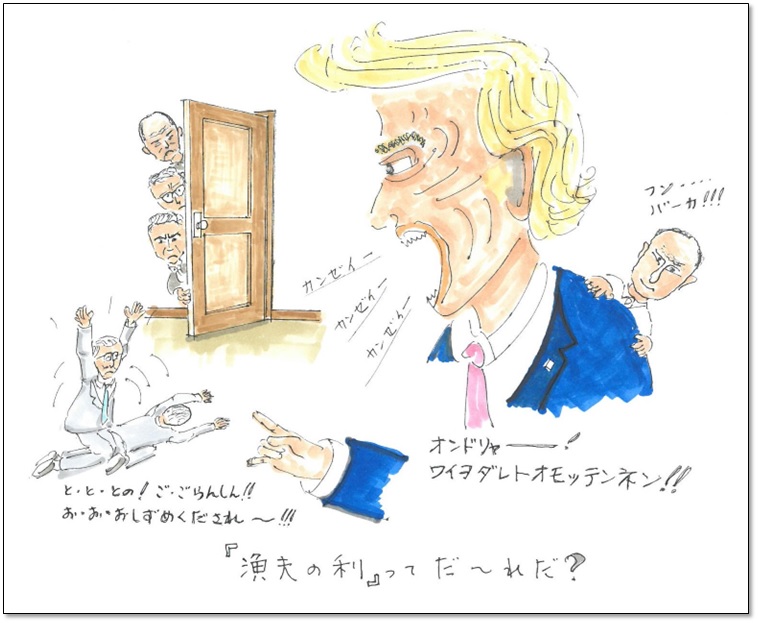 フン‥‥
バーカ!!!
カンゼイー
カンゼイー
カンゼイー
オンドリャー――!
ワイヲダレトオモッテンネン!!
と・と・との! ご・ごらんしん!!
お・お・おしずめくだされ〜!!!
『漁夫の利』ってだ〜れだ?